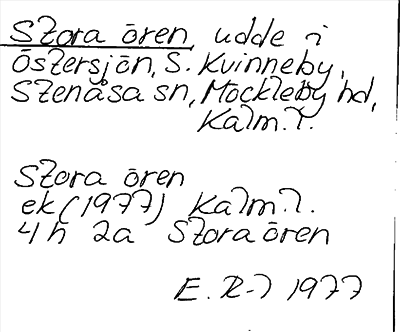 Stora ören, udde i
Östersjön, S. Kvinneby,
Stenåsa sn, Möckleby hd,
Kalm.l.
Stora ören
ek (1977) Kalm.l.
4h 2a Stora ören
E. R-l 1977